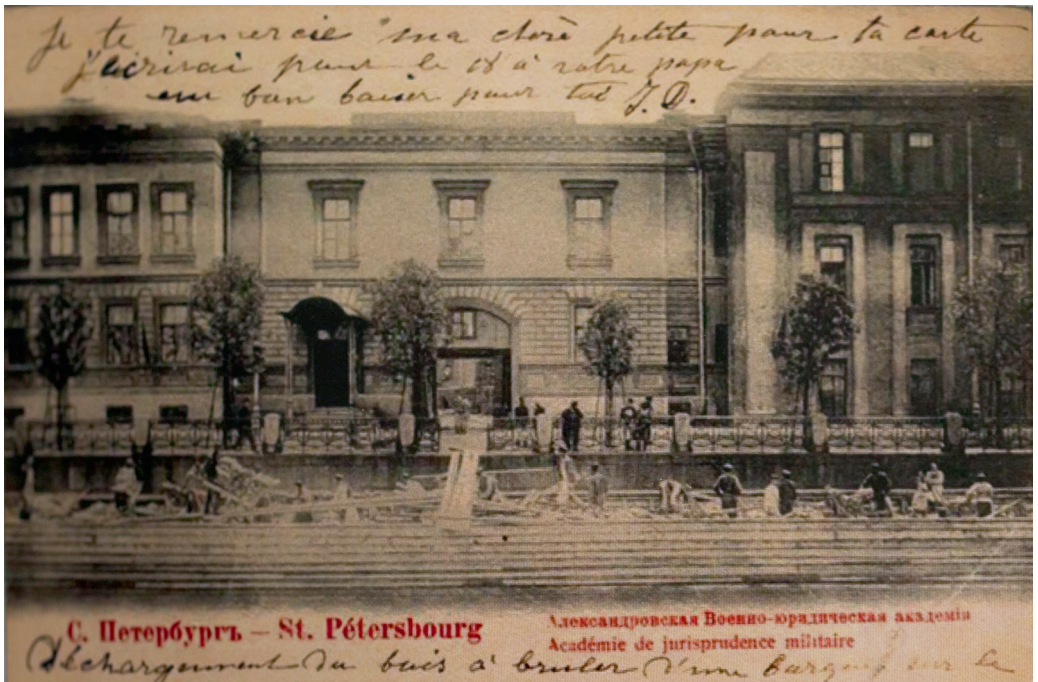 je te remercie ma chère petite pour ta carte
j'écrirai pour le 18 à votre papa
un bon baiser pour toi J. D.
С. Петербургъ – St. Pétersbourg
Александровская Военно-юридическая академія
Académie de jurisprudence militaire
Déchargement du bois à bruler d'une barque sur le